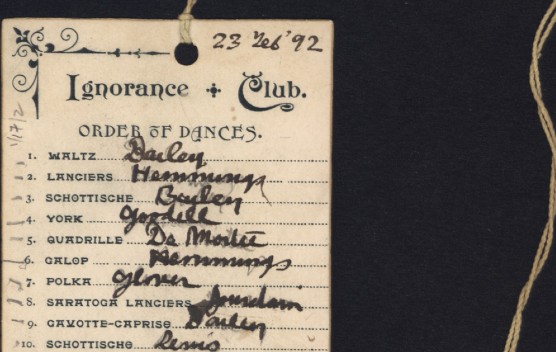 23 Feb '92
Ignorance Club.
ORDER OF DANCES.
1. WALTZ Dailey
2. LANCIERS Hemmings
3. SCHOTTISCHE Bayley
4. YORK
5. QUADRILLE
6. GALOP Hemmings
7. POLKA Glover
8. SARATOGA LANCIERS Jourdain
9. GAVOTTE-CAPRISE
10. SCHOTTISCHE Lewis